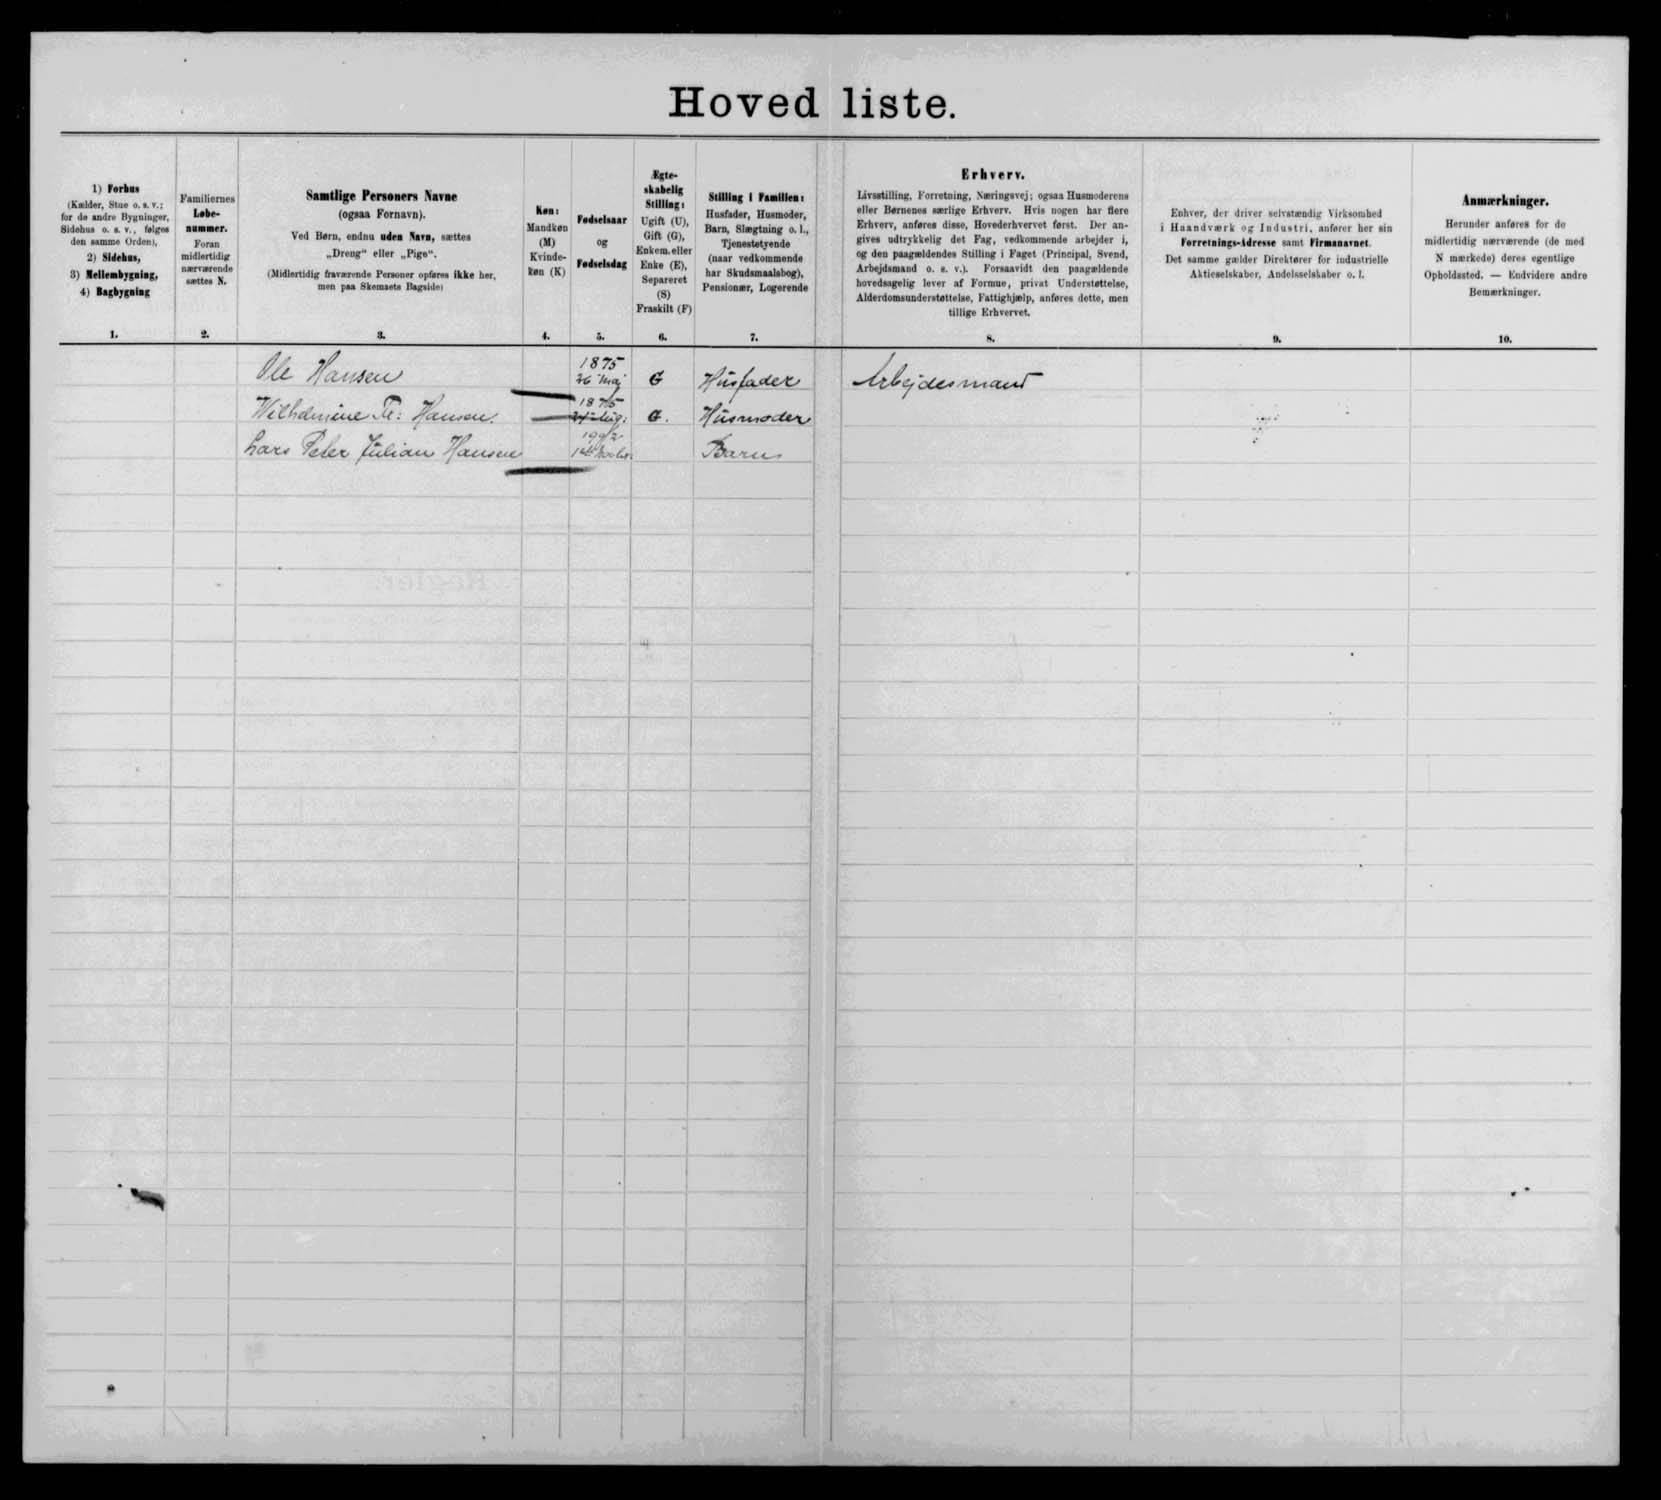 Hoved liste.
1) Forhus
(Kælder, Stue o. s. v.;
for de andre Bygninger,
Sidehus o. s. v., følges
den samme Orden),
2) Sidehus,
3) Mellembygning,
4) Bagbygning
1.
Familiernes
Løbe-
nummer.
Foran
midlertidig
nærværende
sættes N.
2.
Samtlige Personers Navne
(ogsaa Fornavn).
Ved Børn, endnu uden Navn, sættes
„Dreng“ eller „Pige“.
(Midlertidig fraværende Personer opføres ikke her,
men paa Skemaets Bagside)
3.
Køn:
Mandkøn
(M)
Kvinde-
køn (K)
4.
Fødselsaar
og
Fødselsdag
5.
Ægte-
skabelig
Stilling:
Ugift (U),
Gift (G),
Enkem. eller
Enke (E),
Separeret
(S)
Fraskilt (F)
6.
Stilling i Familien:
Husfader, Husmoder,
Barn, Slægtning o. l.,
Tjenestetyende
(naar vedkommende
har Skudsmaalsbog),
Pensionær, Logerende
7.
Erhverv.
Livsstilling, Forretning, Næringsvej; ogsaa Husmoderens
eller Børnenes særlige Erhverv. Hvis nogen har flere
Erhverv, anføres disse, Hovederhvervet først. Der an-
gives udtrykkelig det Fag, vedkommende arbejder i,
og den paagældendes Stilling i Faget (Principal, Svend,
Arbejdsmand o. s. v.). Forsaavidt den paagældende
hovedsagelig lever af Formue, privat Understøttelse,
Alderdomsunderstøttelse, Fattighjælp, anføres dette, men
tillige Erhvervet.
8.
Enhver, der driver selvstændig Virksomhed
i Haandværk og Industri, anfører her sin
Forretnings-Adresse samt Firmanavnet.
Det samme gælder Direktører for industrielle
Aktieselskaber, Andelsselskaber o. l.
9.
Anmærkninger.
Herunder anføres for de
midlertidig nærværende (de med
N mærkede) deres egentlige
Opholdssted. — Endvidere andre
Bemærkninger.
10.
Ole Hansen 1875 26 Maj G Husfader Arbejdesmand
Wilhelmine Hansen. 1875 G. Husmoder
Lars Peter Julian Hansen Barn